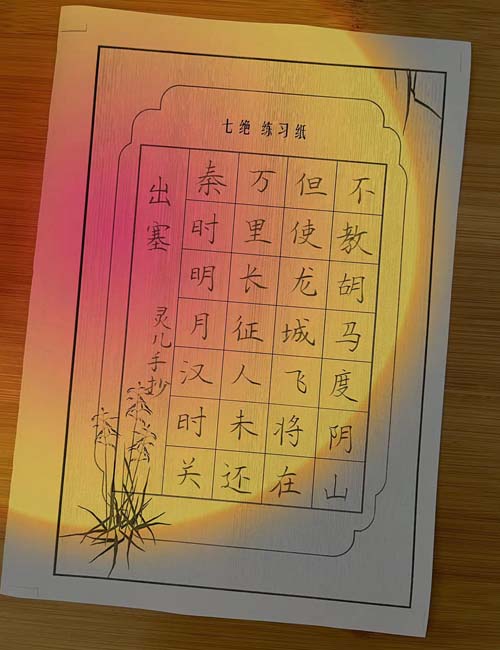 七绝 练习纸
出塞
灵儿手抄
秦时明月汉时关
万里长征人未还
但使龙城飞将在
不教胡马度阴山